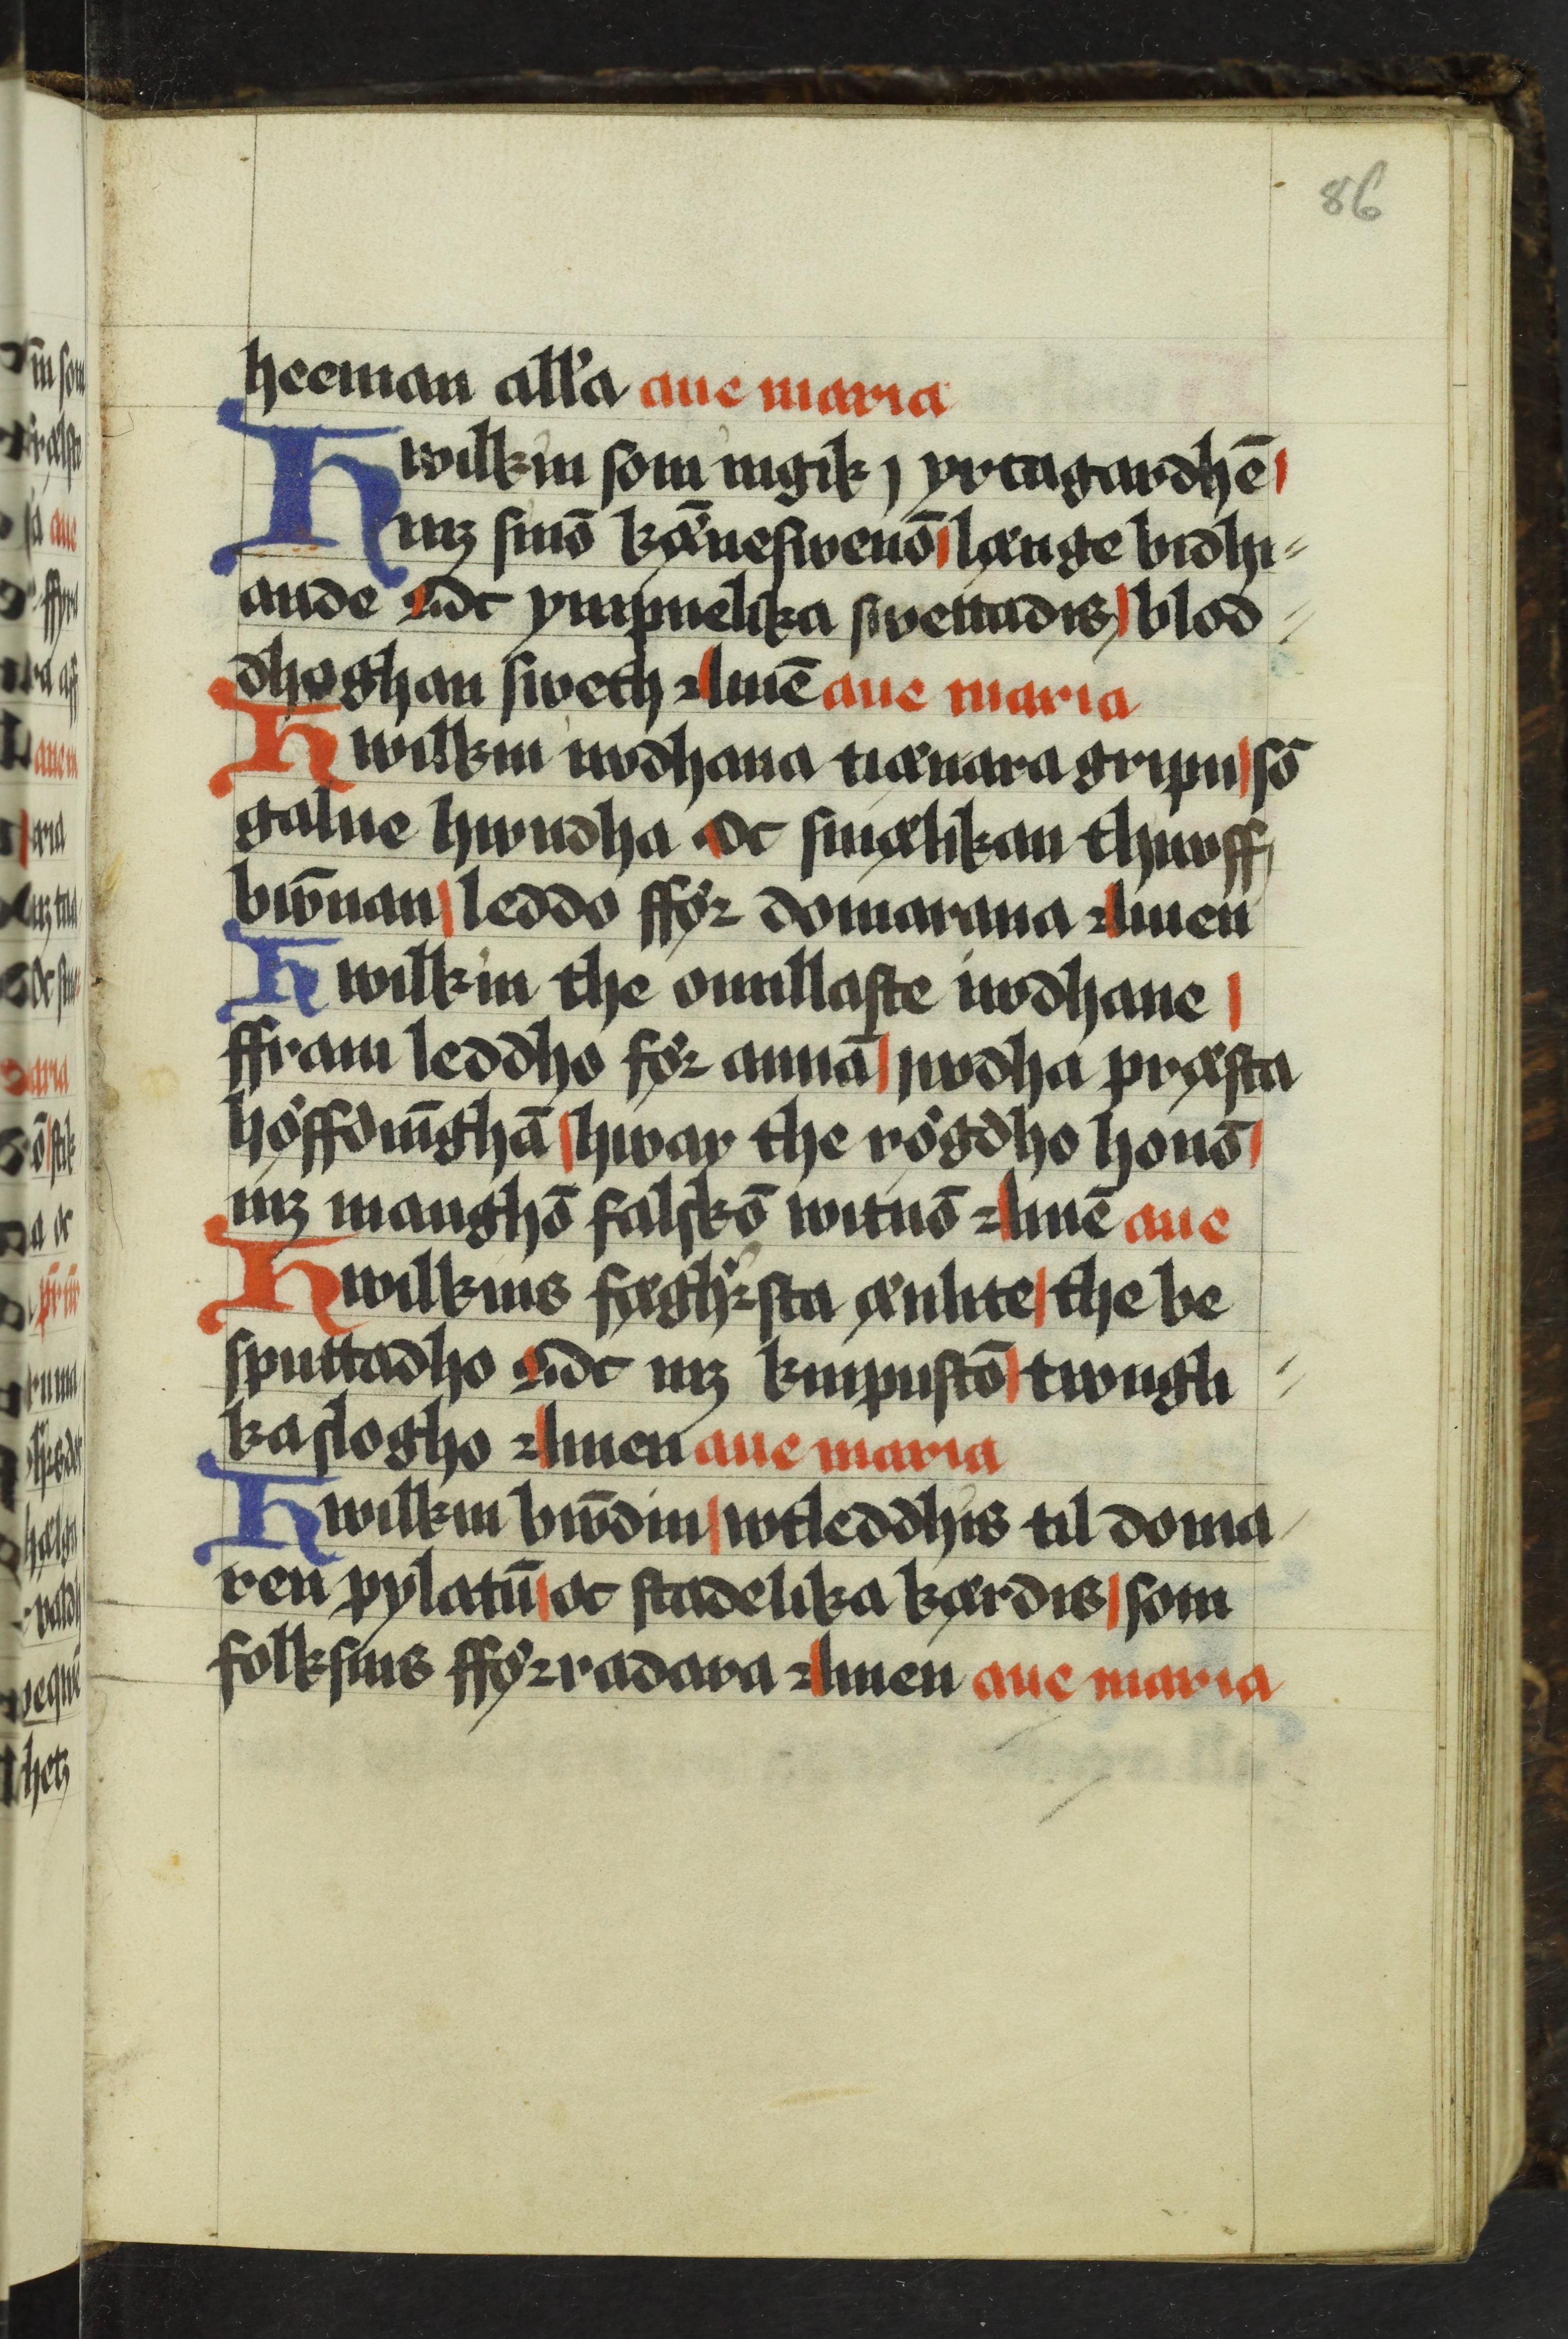 86
heeman all'a aue maria
Hwilkin som ingik j yrtagardhē
mz sinō kǣneswenō længe bidhi=
ande Oc ympnelika swettadis blod=
dhoghan sweth Amē aue maria
Hwilkin iwdhana tiænara gripu sō
galne hwndha Oc smælikan thiwff
bw̄nan leddo ffór domarana Amen
Hwilkin the omillaste iwdhane
ffram leddho fór annā jwdha præsta
hóffdin̄ghā hwar the rógdho honō
mz manghō falskō witnō Amē aue
Hwilkins fægh'sta ænlite the be
sputtadho Oc mz kinpustō twngli=
ka slogho Amen aue maria
Hwilkin bw̄din wtleddhis til doma
ren pylatū oc stadelika kærdis som
folksins ffórradara Amen aue maria